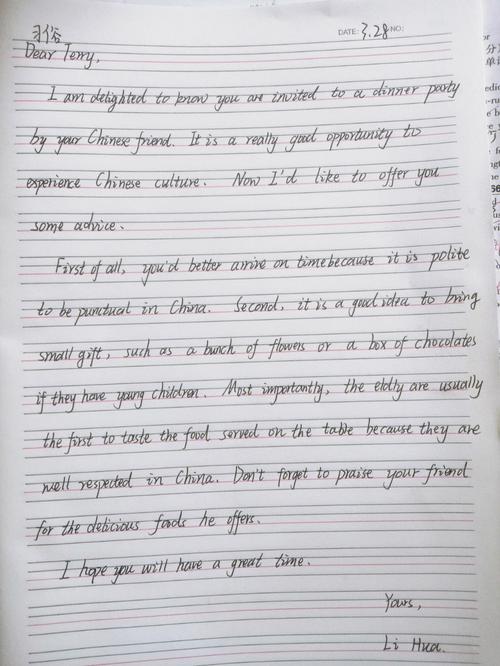 习俗
DATE: 3.28 NO:
Dear Terry,
I am delighted to know you are invited to a dinner party
by your Chinese friend. It is a really good opportunity to
experience Chinese culture. Now I'd like to offer you
some advice.
First of all, you'd better arrive on time because it is polite
to be punctual in China. Second, it is a good idea to bring
small gift, such as a bunch of flowers or a box of chocolates
if they have young children. Most importantly, the eldly are usually
the first to taste the food served on the table because they are
well respected in China. Don't forget to praise your friend
for the delicious foods he offers.
I hope you will have a great time.
Yours,
Li Hua.